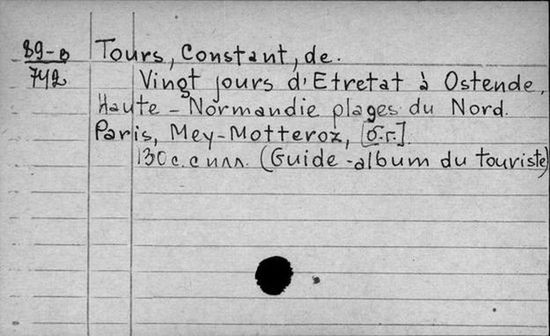 89-в
742
Tours, Constant, de.
Vingt jours d'Etretat à Ostende,
Haute - Normandie plages du Nord.
Paris, Mey-Motteroz, [б.г.].
130 с. с илл. (Guide-album du touriste)